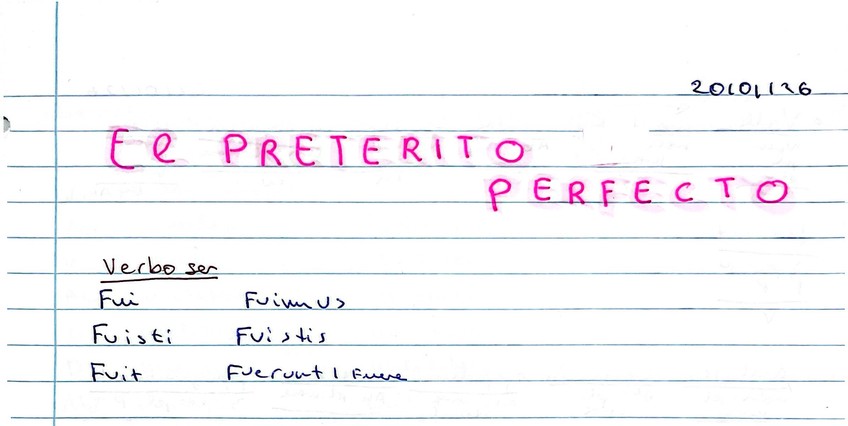 20/01/26
El PRETERITO
PERFECTO
Verbo ser
Fui Fuimus
Fuisti Fuistis
Fuit Fuerunt / Fuere